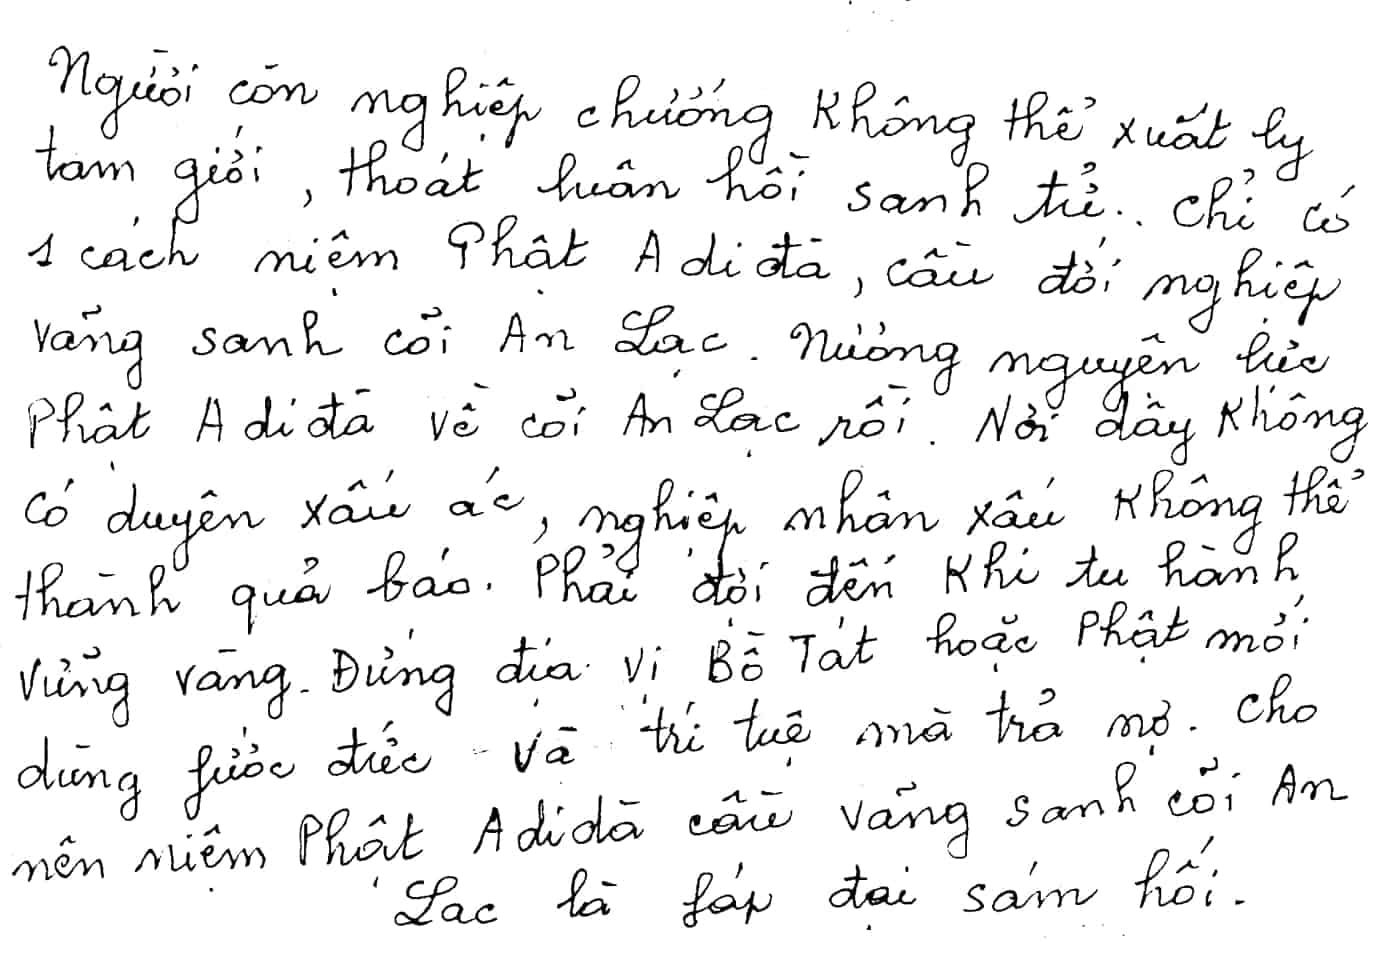 Người còn nghiệp chướng không thể xuất ly
tam giới, thoát luân hồi sanh tử.. chỉ có
1 cách niệm Phật A di đà, cầu đới nghiệp
vãng sanh cõi An Lạc. Nương nguyện lực
Phật A di đà về cõi An Lạc rồi. Nơi đây không
có duyên xấu ác, nghiệp nhân xấu không thể
thành quả báo. Phải đợi đến khi tu hành
vững vàng. Đứng địa vị Bồ Tát hoặc Phật mới
dùng fước đức và trí tuệ mà trả nợ. cho
nên niệm Phật A di dà cầu vãng sanh cõi An
Lạc là fáp đại sám hối.